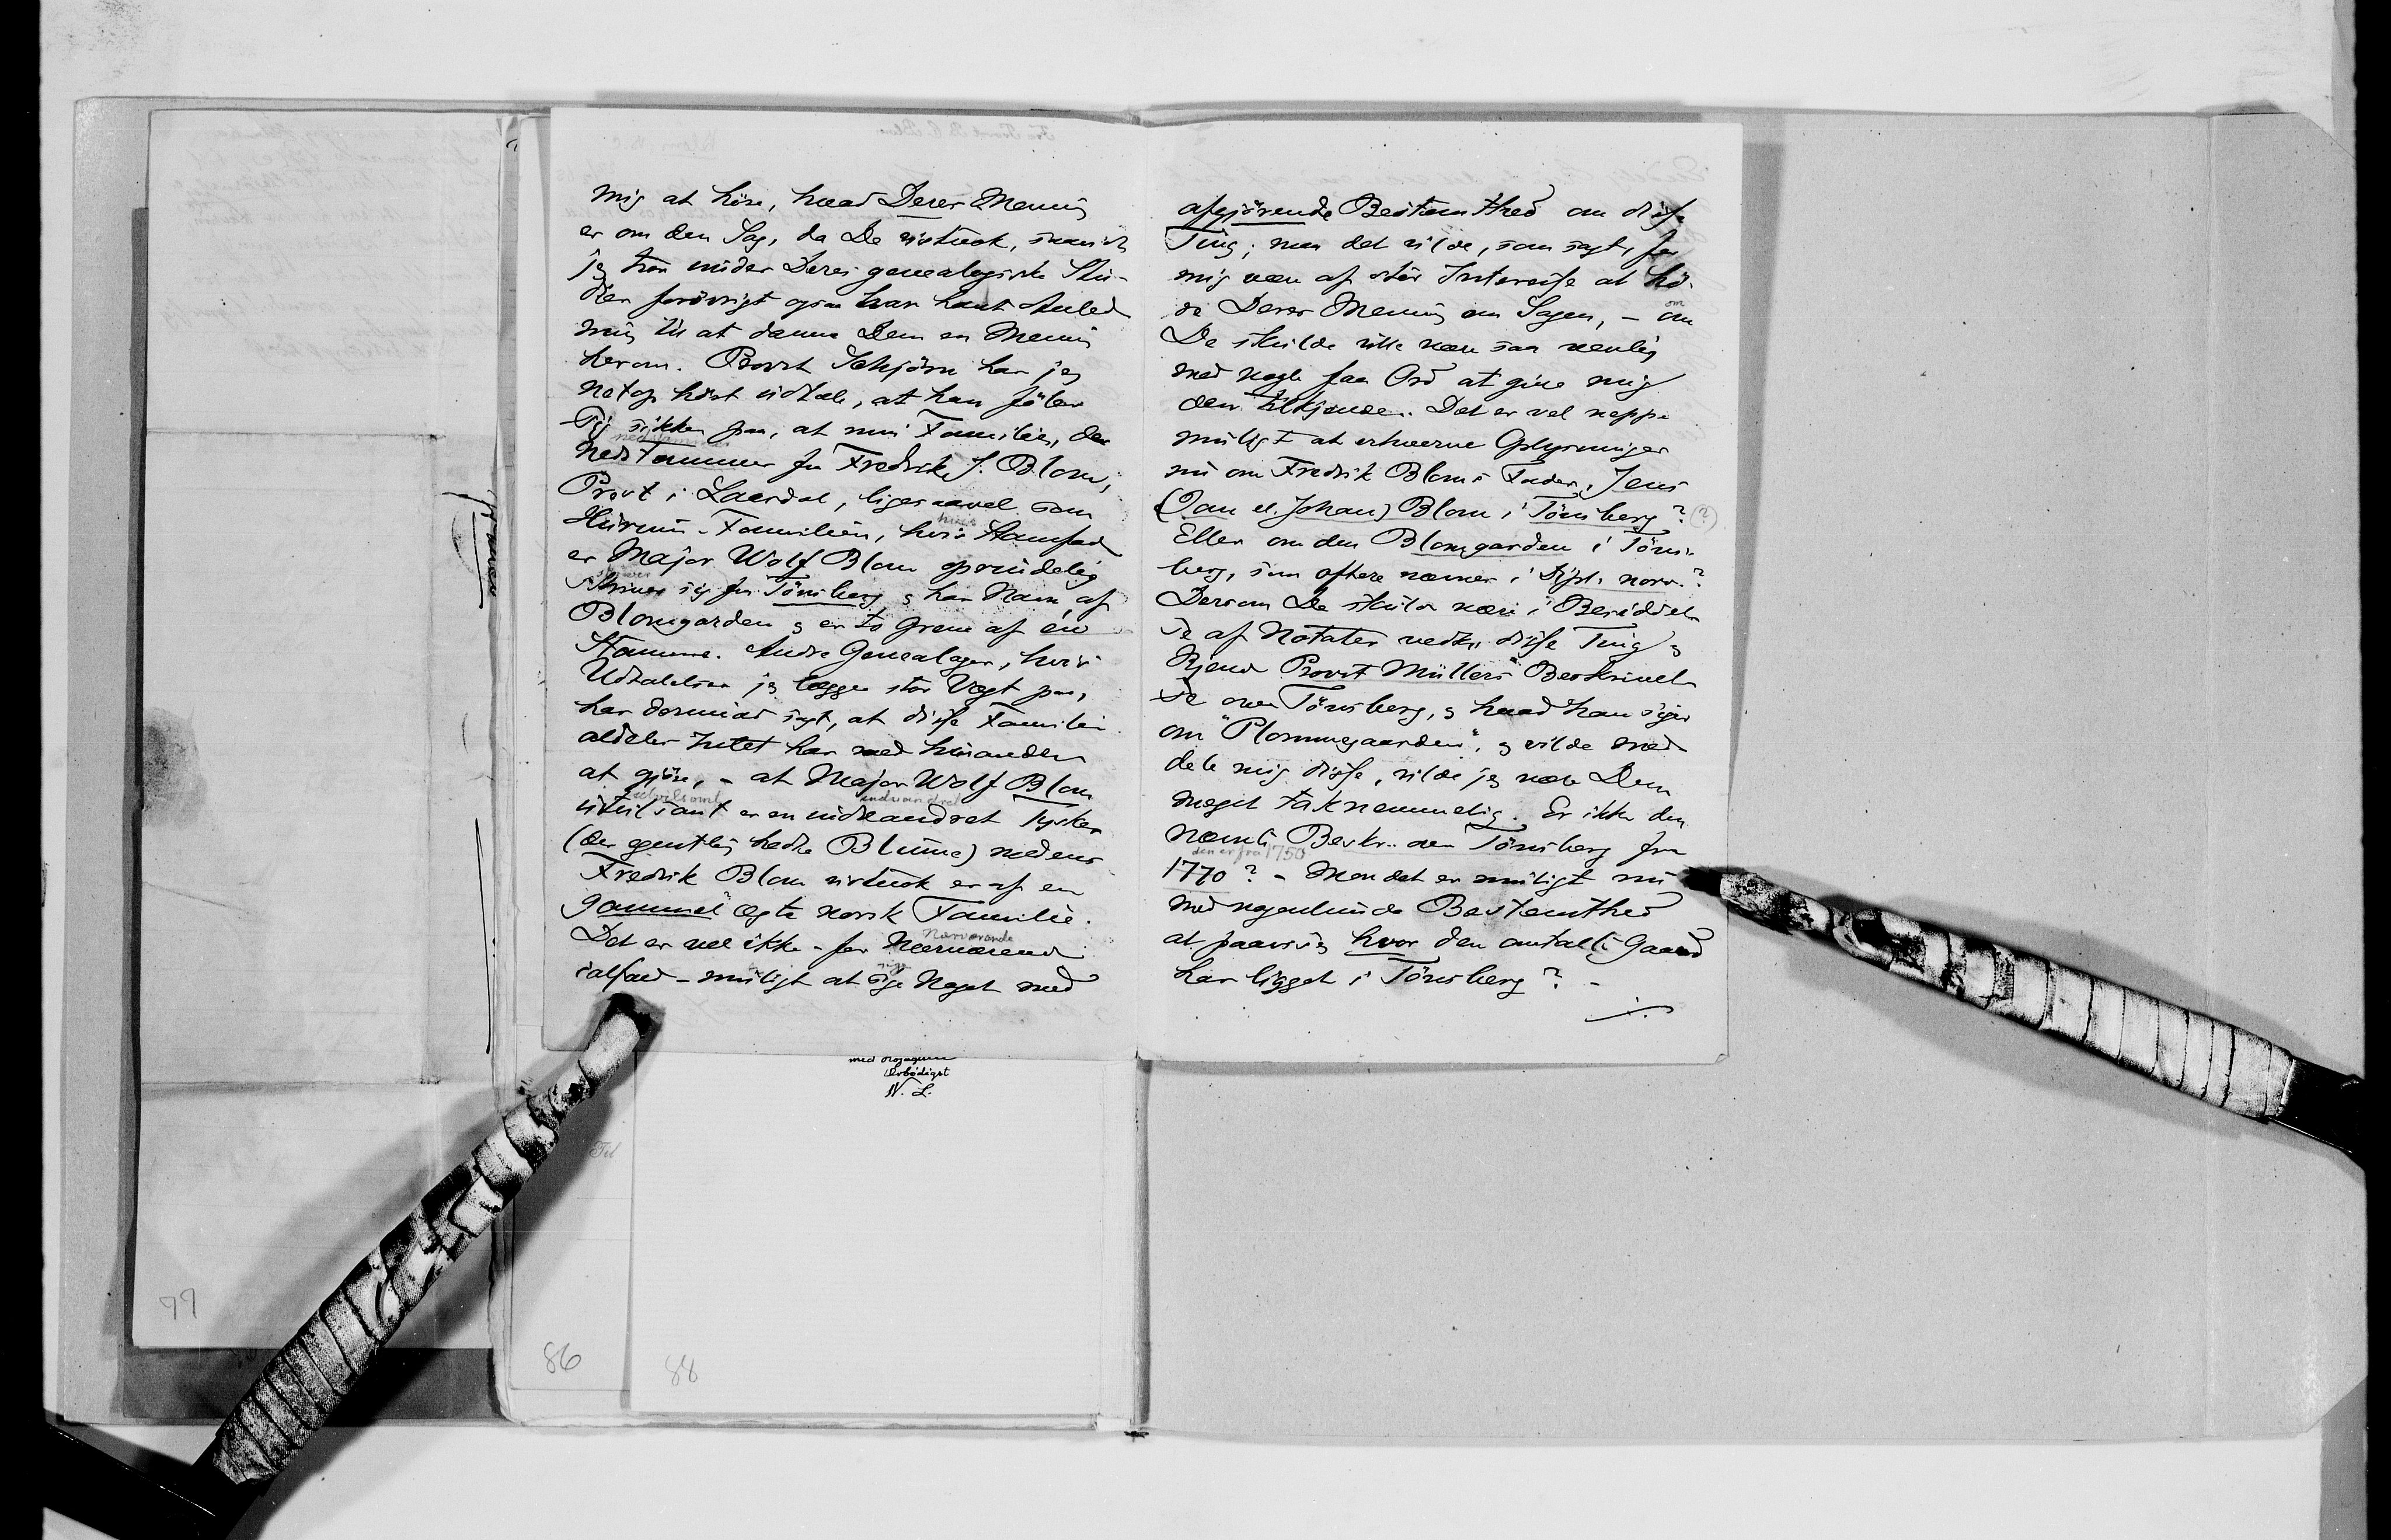 mig at höre, hvad Deres Mening
er om den Sag, da De vistnok,
jeg tror under Deres genealogiske Stu-
dier forövrigt ogsaa har havt Anled
ning til at danne Dem en Mening
herom. Provst Schjörn har jeg
netop hört udtale, at han föler
sig sikker paa, at min Familie, der
nedstammer
nedstammer fra Fredrik J. Blom,
Provst i Laerdal, ligesaavel som
Hurum-Familien, hvis Stamfad
hvis
er Major Wolf Blom oprindelig
skriver
skriver sig fra Tönsberg, & har Navn af
Blomgarden & er to Grene af én
Stamme. Andre Genealoger, hvis
Udtalelser jeg lægger stor Vægt paa,
har derimod sagt, at disse Familier
aldeles Intet har med hinanden
at gjöre, - at Major Wolf Blom
utvilsomt indvandret
utvilsomt er en indvandret Tysker
(der egentlig hedte Blume) medens
Fredrik Blom vistnok er af en
gammel ægte norsk Familie.
Nærværende
Det er vel ikke - for Nærværende
sige
ialfald - muligt at sige Noget med
afgjörende Bestemthed om disse
Ting; men det vilde, som sagt, for
mig være af stor Interesse at hö-
om
re Deres Mening om Sagen, - om
De skulde ville være saa venlig
med nogle faa Ord at give mig
den tilkjende. Det er vel neppe
muligt at erhverve Oplysninger
nu om Fredrik Bloms Fader, Jens
(Jan el. Johan) Blom i Tönsberg? (?)
Eller om den Blomgarden i Töns-
berg, som oftere nævnes i Dipl. norv.?
Dersom De skulde være i Besiddel
se af Notater vedk. disse Ting &
Kjend Provst Müllers Beskrivel
se over Tönsberg, & hvad han siger
om "Plommegaarden", & vilde med
dele mig disse, vilde jeg være Dem
meget taknemmelig. Er ikke den
nævnte Beskr. over Tönsberg fra
den er fra 1750
1770? - Mon det er muligt nu
med nogenlunde Bestemthed
at paavise hvor den omtalte Gaard
har ligget i Tönsberg? -
med Höiagtelse
Erbödigst
N. L.
Til
77
86
88